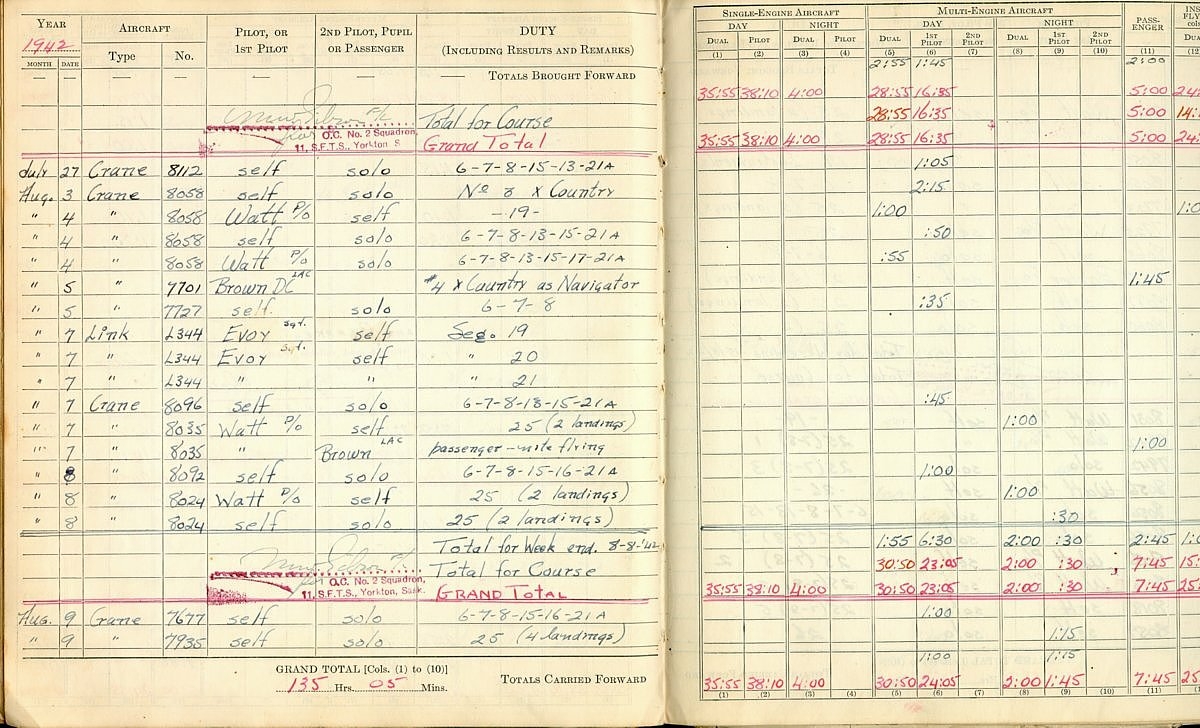 YEAR AIRCRAFT PILOT, OR 1ST PILOT 2ND PILOT, PUPIL OR PASSENGER DUTY (INCLUDING RESULTS AND REMARKS)
1942 Type No.
MONTH DATE
— — — — — — — TOTALS BROUGHT FORWARD
Total for Course
O.C. No. 2 Squadron,
11, S.F.T.S., Yorkton S Grand Total
July 27 Crane 8112 self solo 6-7-8-15-13-21A
Aug. 3 Crane 8058 self solo No 8 X Country
" 4 " 8058 Watt P/o self -19-
" 4 " 8058 self solo 6-7-8-13-15-21A
" 4 " 8058 Watt P/o solo 6-7-8-13-15-17-21A
" 5 " 7701 Brown DC LAC #4 X Country as Navigator
" 5 " 7727 self. solo 6-7-8
" 7 Link L344 Evoy Sgt. self Seq. 19
" 7 " L344 Evoy Sgt. self " 20
" 7 " L344 " " " 21
" 7 Crane 8096 self solo 6-7-8-13-15-21A
" 7 " 8035 Watt P/o self 25 (2 landings)
" 7 " 8035 " Brown LAC passenger-nite flying
" 8 " 8092 self solo 6-7-8-15-16-21A
" 8 " 8024 Watt P/o self 25 (2 landings)
" 8 " 8024 self solo 25 (2 landings)
Total for Week end. 8-8-'42
Total for Course
O.C. No. 2 Squadron,
11, S.F.T.S., Yorkton, Sask. GRAND TOTAL
Aug. 9 Crane 7677 self solo 6-7-8-15-16-21A
" 9 " 7935 self solo 25 (4 landings)
GRAND TOTAL [Cols. (1) to (10)]
135 Hrs. 05 Mins. TOTALS CARRIED FORWARD
SINGLE-ENGINE AIRCRAFT MULTI-ENGINE AIRCRAFT PASS-ENGER
DAY NIGHT DAY NIGHT
DUAL PILOT DUAL PILOT DUAL 1ST PILOT 2ND PILOT DUAL 1ST PILOT 2ND PILOT
(1) (2) (3) (4) (5) (6) (7) (8) (9) (10) (11)
2:55 1:45 2:00
35:55 38:10 4:00 28:55 16:35 5:00
28:55 16:35 5:00
35:55 38:10 4:00 28:55 16:35 5:00
1:05
2:15
1:00
:50
:55
1:45
:35
:45
1:00
1:00
1:00
1:00
:30
1:55 6:30 2:00 :30 2:45
30:50 23:05 2:00 :30 7:45
35:55 38:10 4:00 30:50 23:05 2:00 :30 7:45
1:00
1:15
1:00 1:15
35:55 38:10 4:00 30:50 24:05 2:00 1:45 7:45
(1) (2) (3) (4) (5) (6) (7) (8) (9) (10) (11)